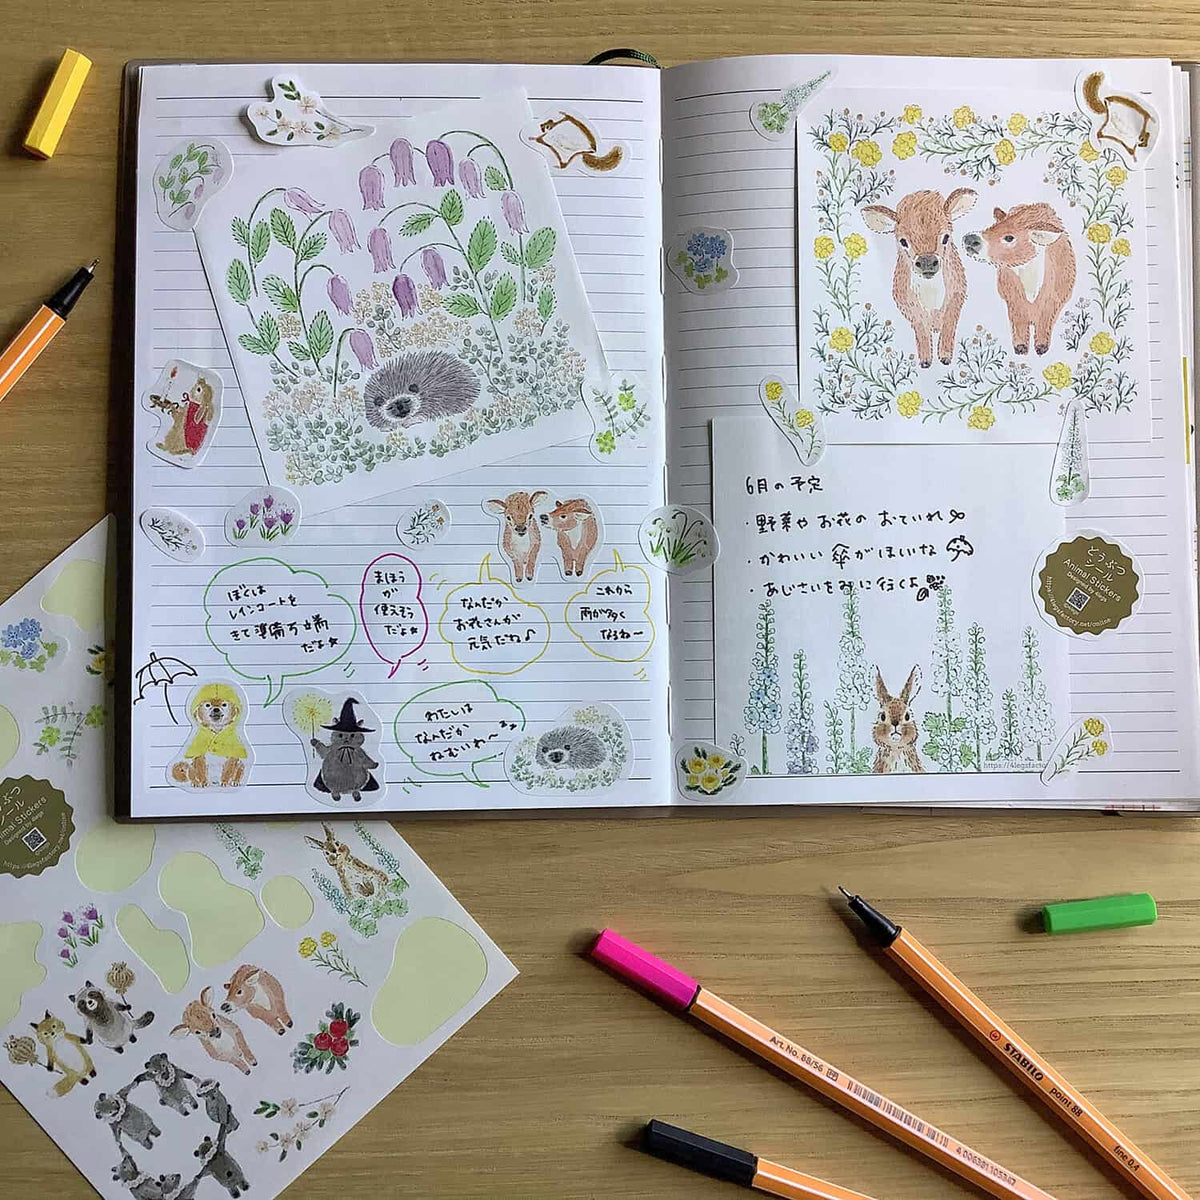 ぼくは
レインコートを
きて準備万端
だよ☆
まほう
が
使えそう
だよ☆
なんだか
お花さんが
元気だね♪
これから
雨が多く
なるね〜
わたしは
なんだか
ねむいわ〜
6月の予定
・野菜や お花の おていれ
・かわいい 傘がほしいな
・あじさいをみに行くよ
https://4legsfacto
どうぶつ
シール
Animal Stickers
Designed by 4legs
https://4legsfactory.net/online
うぶつ
シール
nimal Stickers
Designed by 4legs
https://4legsfactory.net/online
Art. No. 88/56
4 006381 105347
STABILO
point 88
fine 0.4